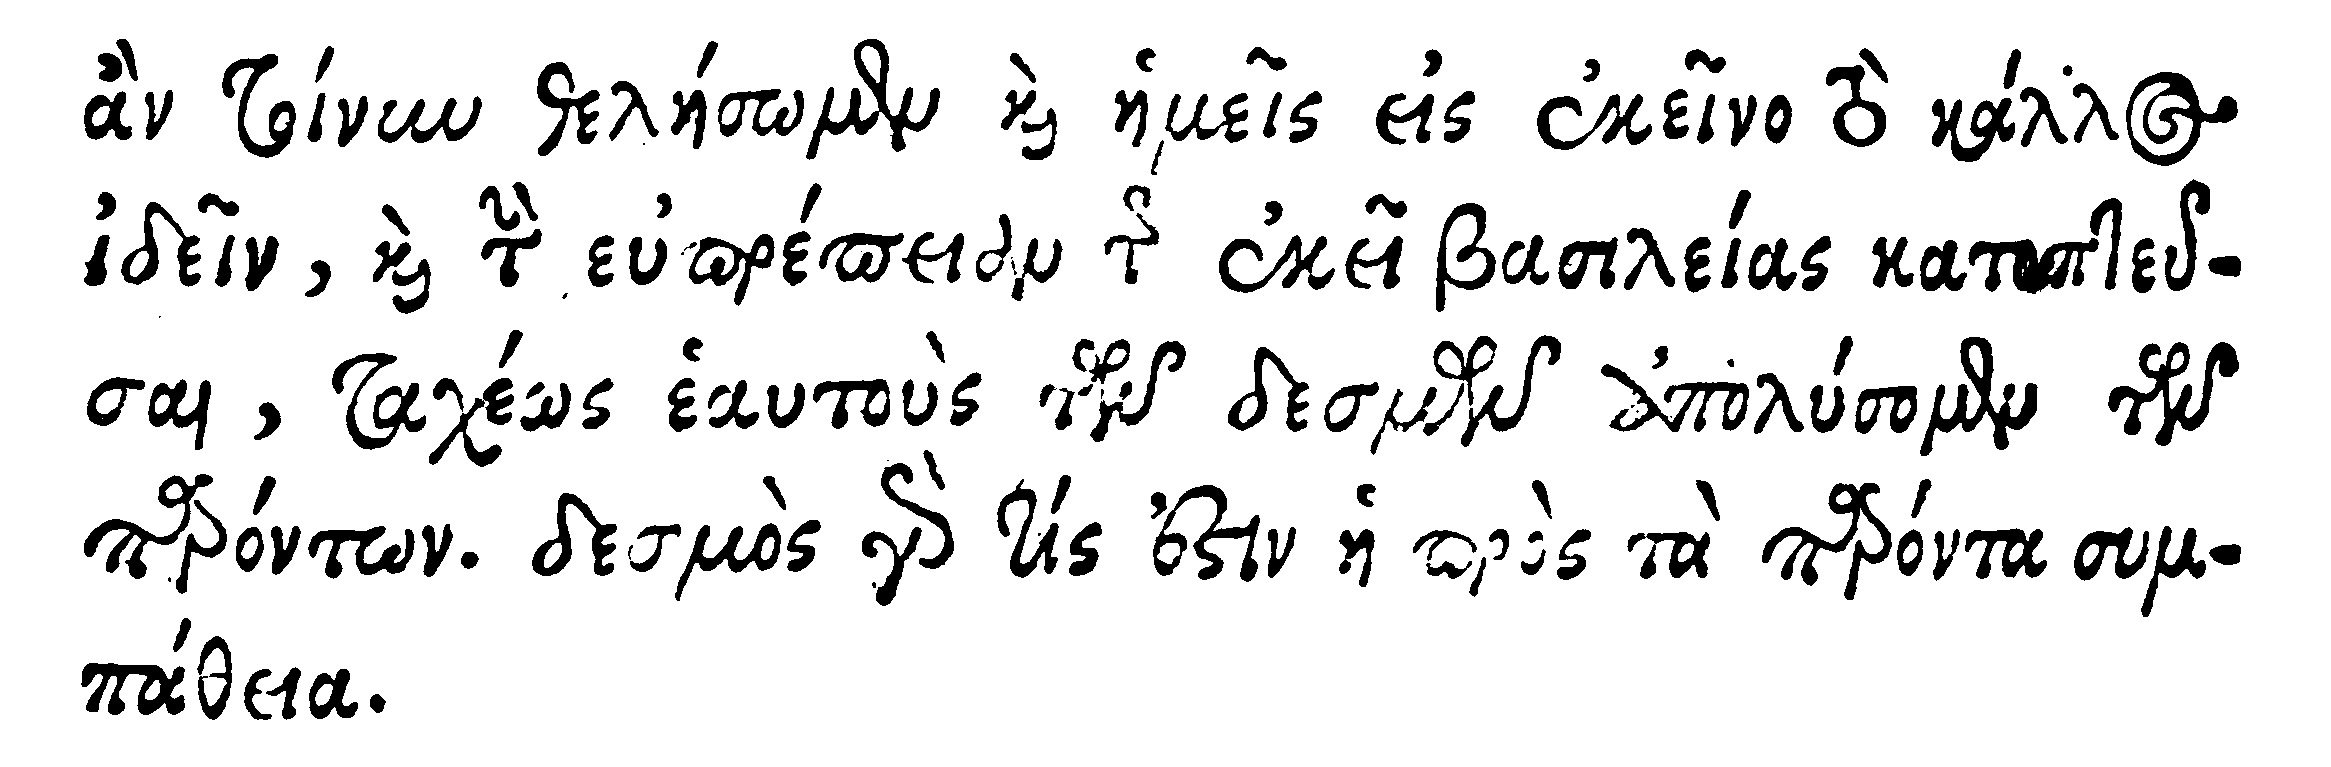 ἂν τοίνυν θελήσωμεν καὶ ἡμεῖς εἰς ἐκεῖνο τὸ κάλλος
ἰδεῖν, καὶ τὴν εὐπρέπειαν τῆς ἐκεῖ βασιλείας κατοπτεῦ-
σαι, ταχέως ἑαυτοὺς τῶν δεσμῶν ἀπολύσομεν τῶν
παρόντων. δεσμὸς γὰρ τίς ἐστιν ἡ πρὸς τὰ παρόντα συμ-
πάθεια.